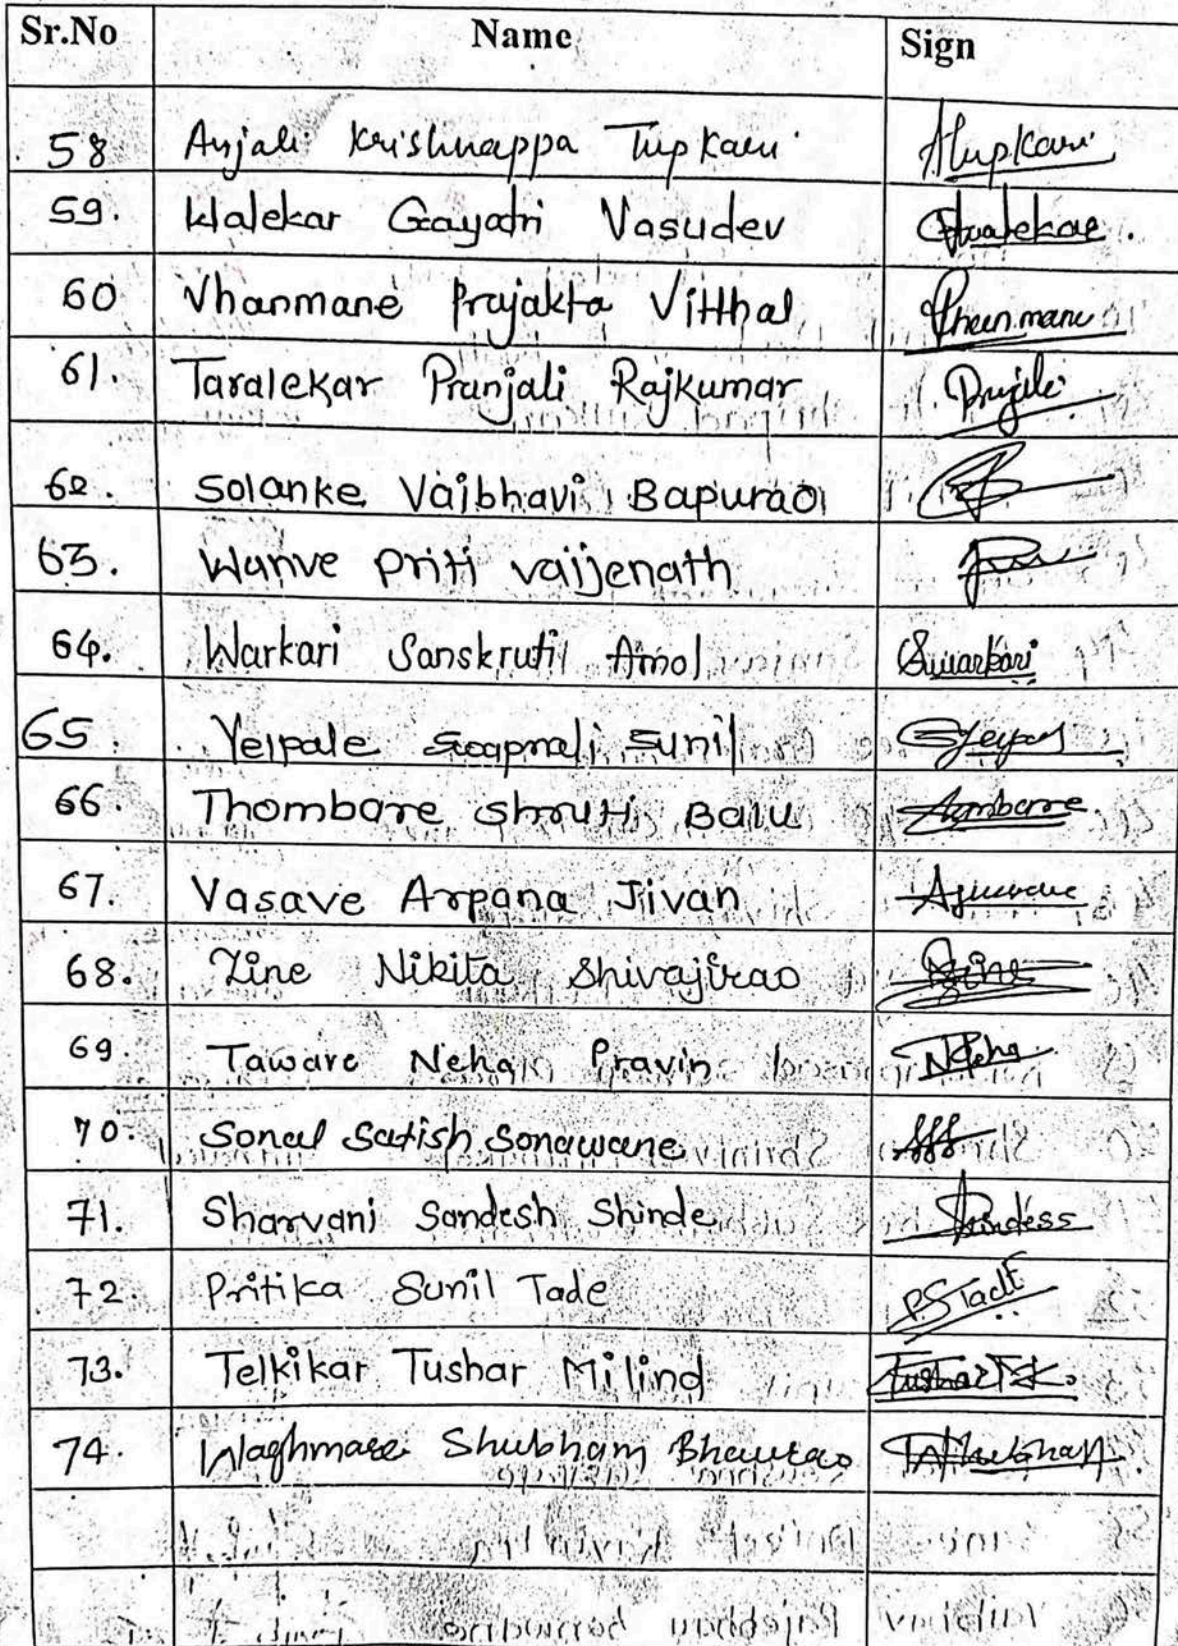 Sr.No Name Sign
58 Anjali Krishnappa Tupkari Atupkari
59. Walekar Gayatri Vasudev Gwalekar.
60 Vhanmane Prajakta Vitthal Pvhanmane
61. Taralekar Pranjali Rajkumar
62. Solanke Vaibhavi Bapurao
63. Wanve Priti vaijenath
64. Warkari Sanskruti Amol Swarkari
65. Yelpale Swapnali Sunil
66. Thombare Shruti Balu
67. Vasave Arpana Jivan
68. Zine Nikita Shivajirao
69. Taware Neha Pravin
70. Sonal Satish Sonawane
71. Sharvani Sandesh Shinde Shindess
72. Pritika Sunil Tade PSTade
73. Telkikar Tushar Milind
74. Waghmare Shubham Bhaurao